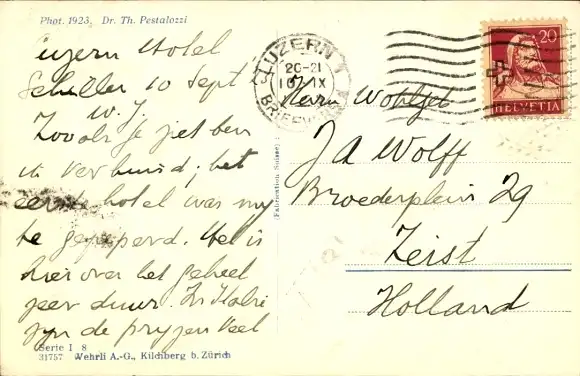 Phot. 1923. Dr. Th. Pestalozzi
Luzern Hotel
Schiller 10 Sept
W. J.
Zooals je ziet ben
ik verhuisd; het
eerste hotel was my
te gepeperd. Het is
hier over het geheel
zeer duur. In Italie
zyn de pryzen veel
Serie I 8
31757 Wehrli A.-G., Kilchberg b. Zürich
(Fabrication Suisse)
LUZERN 1
20-21
10 IX
20
HELVETIA
Herrn
J A Wolff
Broederplein 29
Zeist
Holland